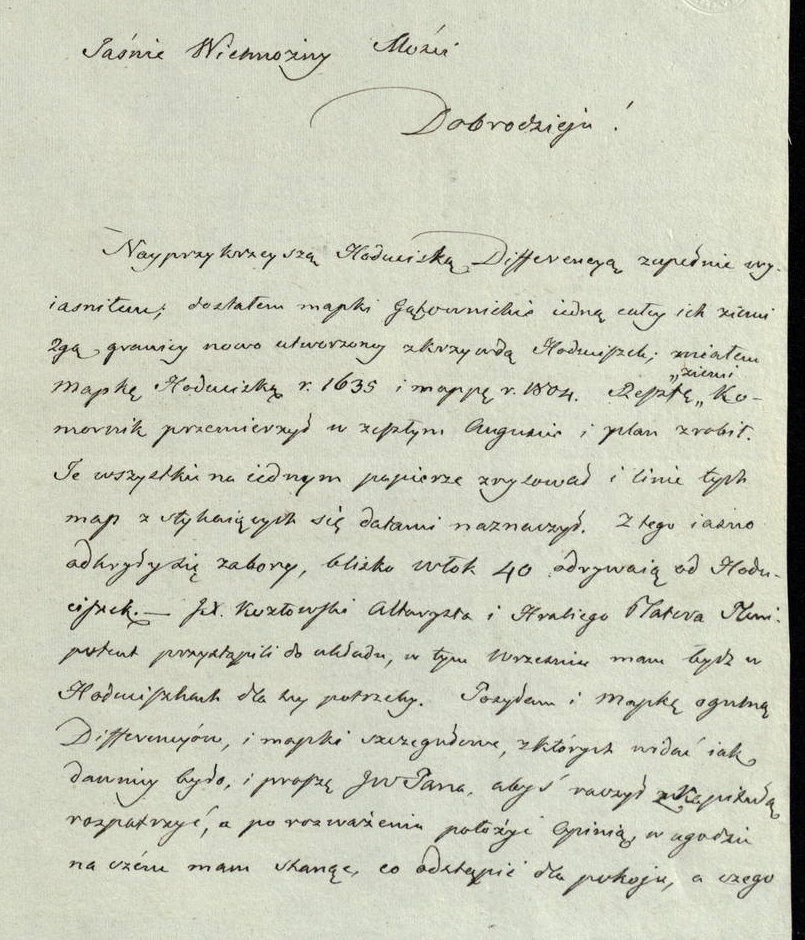 Jaśnie Wielmożny Mości
Dobrodzieju!
Nayprzykrzeyszą Hoduciską Differencyą zupełnie wy-
iasniłem; dostałem mapki Gąsownickie iedną całey ich ziemi
2gą granicy nowo utworzoney zkrzywdą Hoduciszek; miałem
Mapkę Hoduciską r. 1635 i mappę r. 1804. Resztę „ziemi„ Ko-
mornik przemierzył w zeszłym Auguście i plan zrobił.
Te wszystkie na iednym papierze zrysował i linie tych
map z stykaiących się datami naznaczył. Z tego iasno
odkryły się zabory, blisko włok 40 odrywaią od Hodu-
ciszek. — JX. Kozłowski Altarysta i Hrabiego Platera Pleni-
potent przystąpili do układu, w tym Wrześniu mam bydź w
Hoduciszkach dla tey potrzeby. Posyłam i Mapkę ogulną
Differencyów, i mapki szczegułowe, z których widać iak
dawniey było, i proszę JW Pana, abyś raczył z Kapitułą
rozpatrzyć, a po rozważeniu położyć Opinią, w ugodzie
na czém mam stanąć, co odstąpić dla pokoju, a czego